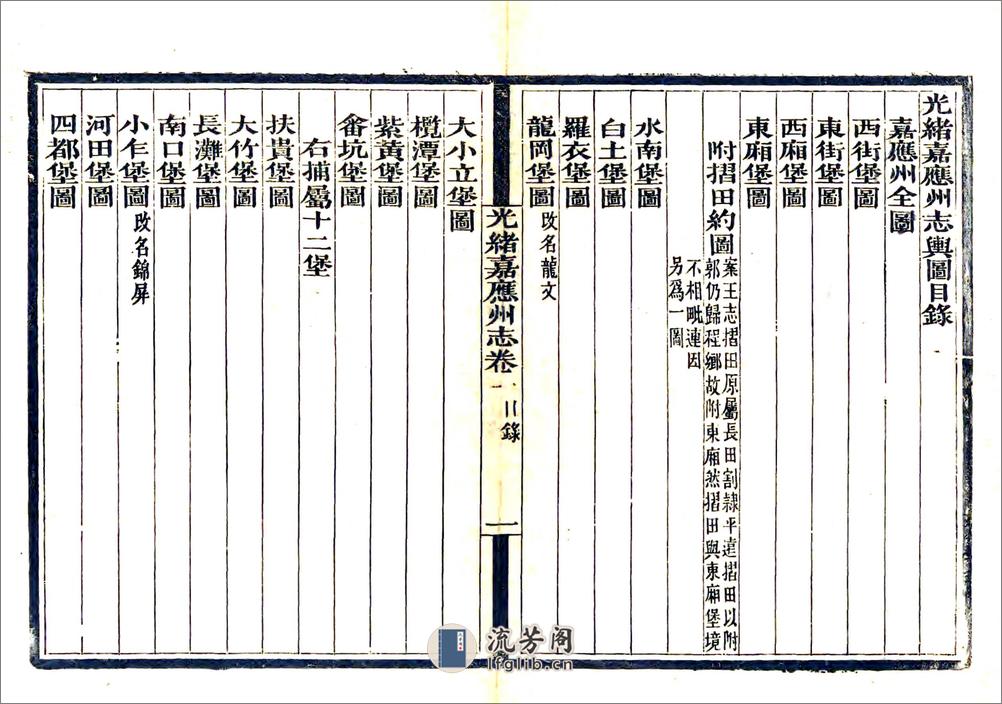 光緒嘉應州志輿圖目錄
嘉應州全圖
西街堡圖
東街堡圖
西廂堡圖
東廂堡圖
附摺田約圖
案王志摺田原屬長田割隸平遠摺田以附
郭仍歸程鄉故附東廂然摺田與東廂堡境
不相毗連因
另爲一圖
水南堡圖
白土堡圖
羅衣堡圖
龍岡堡圖 改名龍文
光緒嘉應州志卷一 目錄
一
大小立堡圖
欖潭堡圖
紫黃堡圖
畬坑堡圖
右捕屬十二堡
扶貴堡圖
大竹堡圖
長灘堡圖
南口堡圖
小乍堡圖 改名錦屏
河田堡圖
四都堡圖
流芳阁
lfglib.cn